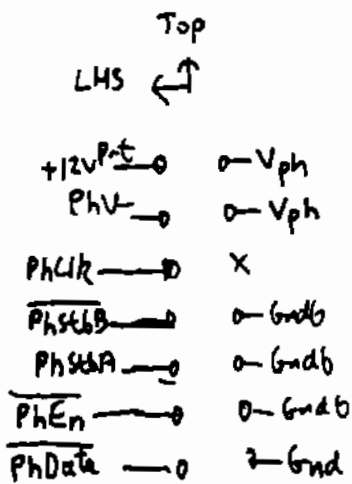 Top
LHS
+12V Prt Vph
PhV Vph
PhClk X
PhStbB Gndb
PhStbA Gndb
PhEn Gndb
PhData Gnd